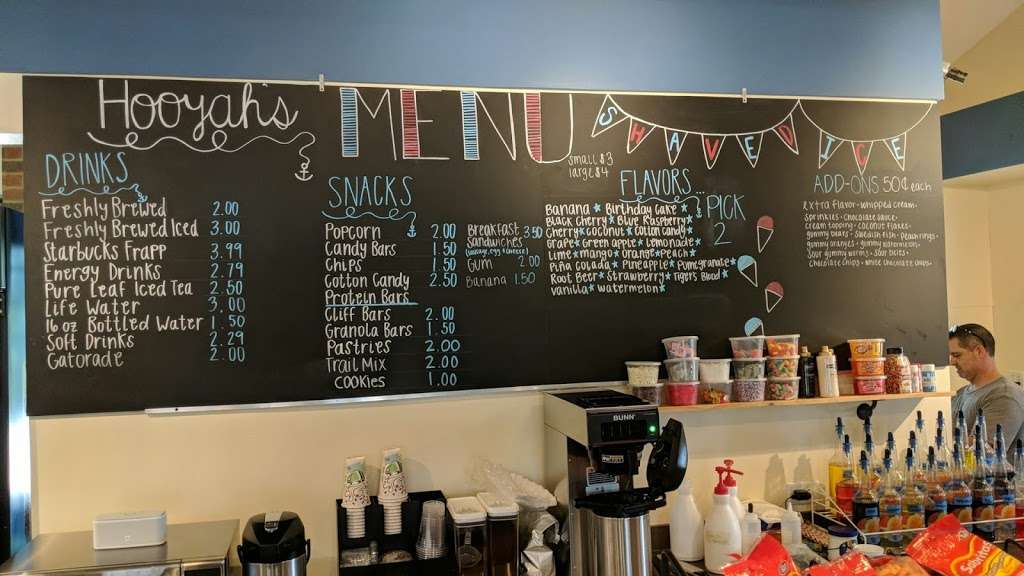 Hooyah's MENU
SHAVED ICE
DRINKS
Freshly Brewed 2.00
Freshly Brewed Iced 3.00
Starbucks Frapp 3.99
Energy Drinks 2.79
Pure Leaf Iced Tea 2.50
Life Water 3.00
16 oz Bottled Water 1.50
Soft Drinks 2.29
Gatorade 2.00
SNACKS
Popcorn 2.00
Candy Bars 1.50
Chips 1.50
Cotton Candy 2.50
Protein Bars
Cliff Bars 2.00
Granola Bars 1.50
Pastries 2.00
Trail Mix 2.00
Cookies 1.00
Breakfast 3.50
Sandwiches
Gum 2.00
Banana 1.50
small $3
large $4
FLAVORS...
PICK
2
Banana * Birthday Cake *
Black Cherry * Blue Raspberry *
Cherry * Coconut * Cotton Candy *
Grape * Green apple * Lemonade *
Lime * mango * orange * Peach *
Piña Colada * Pineapple * Pomegranate *
Root Beer * Strawberry * Tiger's Blood *
vanilla * watermelon *
ADD-ONS 50¢ each
extra flavor - whipped cream -
sprinkles - chocolate sauce -
cream topping - coconut flakes -
gummy bears - swedish fish - peach rings -
gummy oranges - gummy watermelon -
sour gummy worms - sour bites -
chocolate chips - white chocolate chips -
BUNN